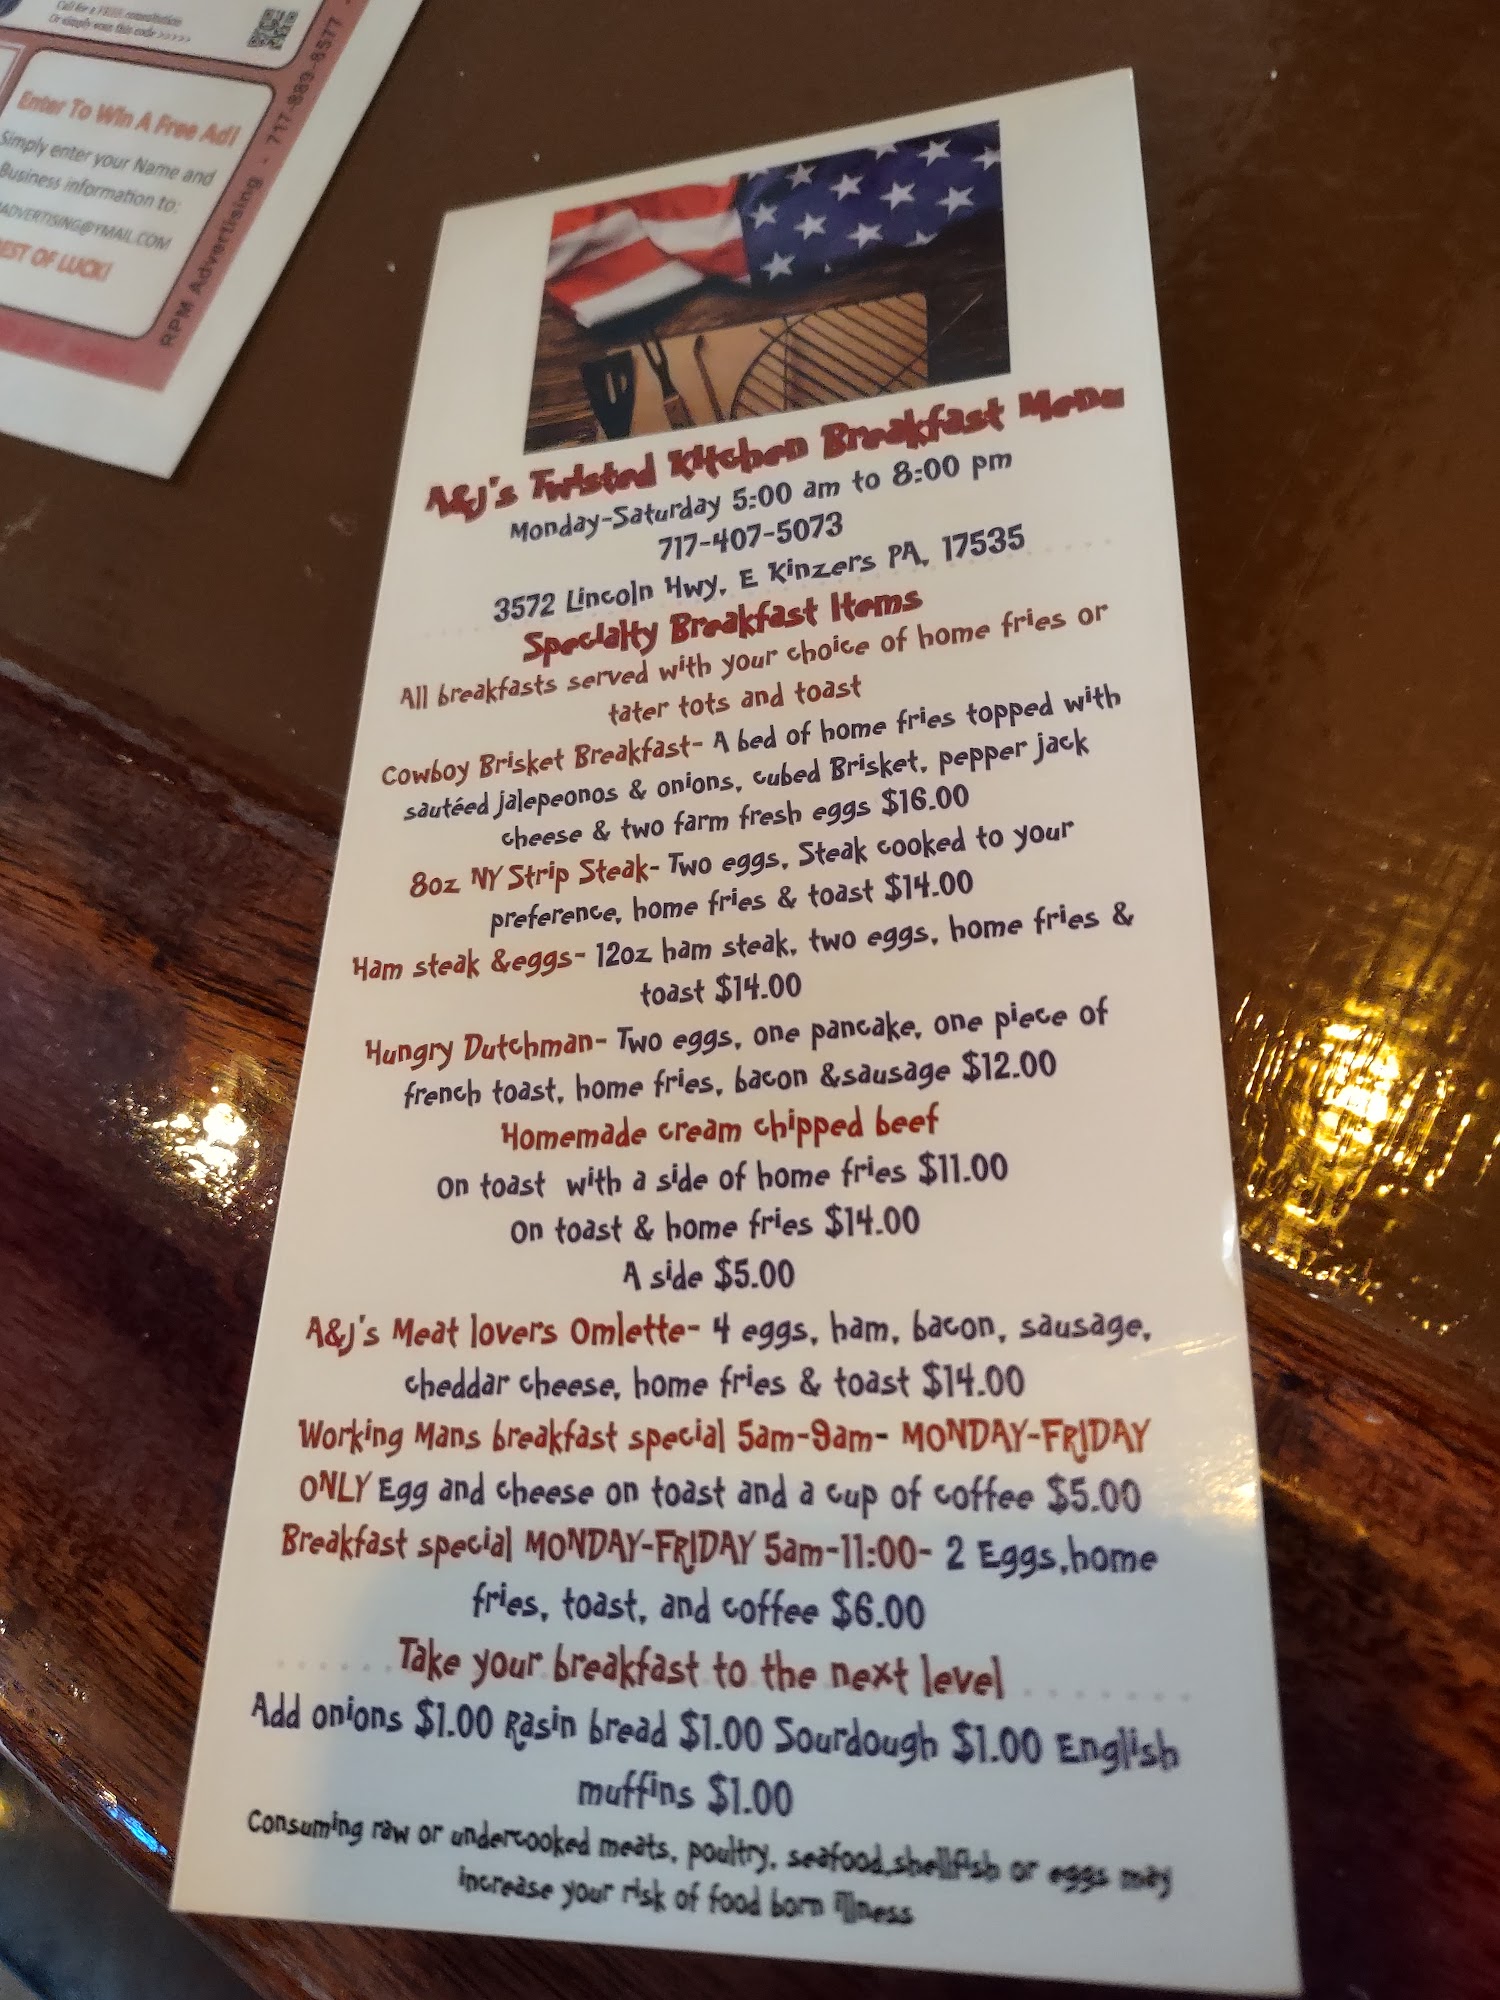 Call for a FREE consultation
Or simply scan this code >>>>>
Enter To Win A Free Ad!
Simply enter your Name and
Business information to:
ADVERTISING@YMAIL.COM
BEST OF LUCK!
RPM Advertising - 717-889-6577 -
A&J's Twisted Kitchen Breakfast Menu
Monday-Saturday 5:00 am to 8:00 pm
717-407-5073
3572 Lincoln Hwy, E Kinzers PA, 17535
Specialty Breakfast Items
All breakfasts served with your choice of home fries or
tater tots and toast
Cowboy Brisket Breakfast- A bed of home fries topped with
sautéed jalepeonos & onions, cubed Brisket, pepper jack
cheese & two farm fresh eggs $16.00
8oz NY Strip Steak- Two eggs, Steak cooked to your
preference, home fries & toast $14.00
Ham steak &eggs- 12oz ham steak, two eggs, home fries &
toast $14.00
Hungry Dutchman- Two eggs, one pancake, one piece of
french toast, home fries, bacon &sausage $12.00
Homemade cream chipped beef
on toast with a side of home fries $11.00
on toast & home fries $14.00
A side $5.00
A&J's Meat lovers Omlette- 4 eggs, ham, bacon, sausage,
cheddar cheese, home fries & toast $14.00
Working Mans breakfast special 5am-9am- MONDAY-FRIDAY
ONLY Egg and cheese on toast and a cup of coffee $5.00
Breakfast special MONDAY-FRIDAY 5am-11:00- 2 Eggs,home
fries, toast, and coffee $6.00
Take your breakfast to the next level
Add onions $1.00 Rasin bread $1.00 Sourdough $1.00 English
muffins $1.00
Consuming raw or undercooked meats, poultry, seafood,shellfish or eggs may
increase your risk of food born illness